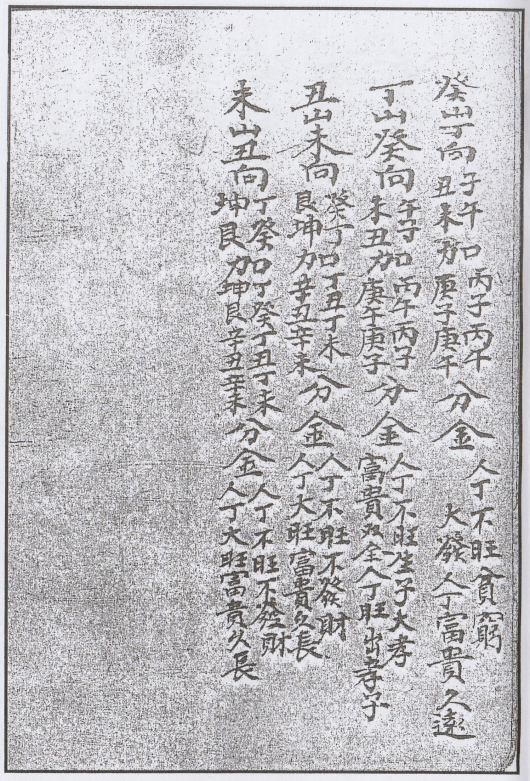 癸山丁向 子午加丙子丙午 丑未加庚子庚午 分金 人丁不旺貧窮 大發人丁富貴久遠
丁山癸向 午子加丙午丙子 未丑加庚午庚子 分金 人丁不旺生子大孝 富貴双全人丁旺出孝子
丑山未向 癸丁加丁丑丁未 艮坤加辛丑辛未 分金 人丁不旺不發財 人丁大旺富貴久長
未山丑向 丁癸加丁癸丁丑丁未 坤艮加坤艮辛丑辛未 分金 人丁不旺不發財 人丁大旺富貴久長